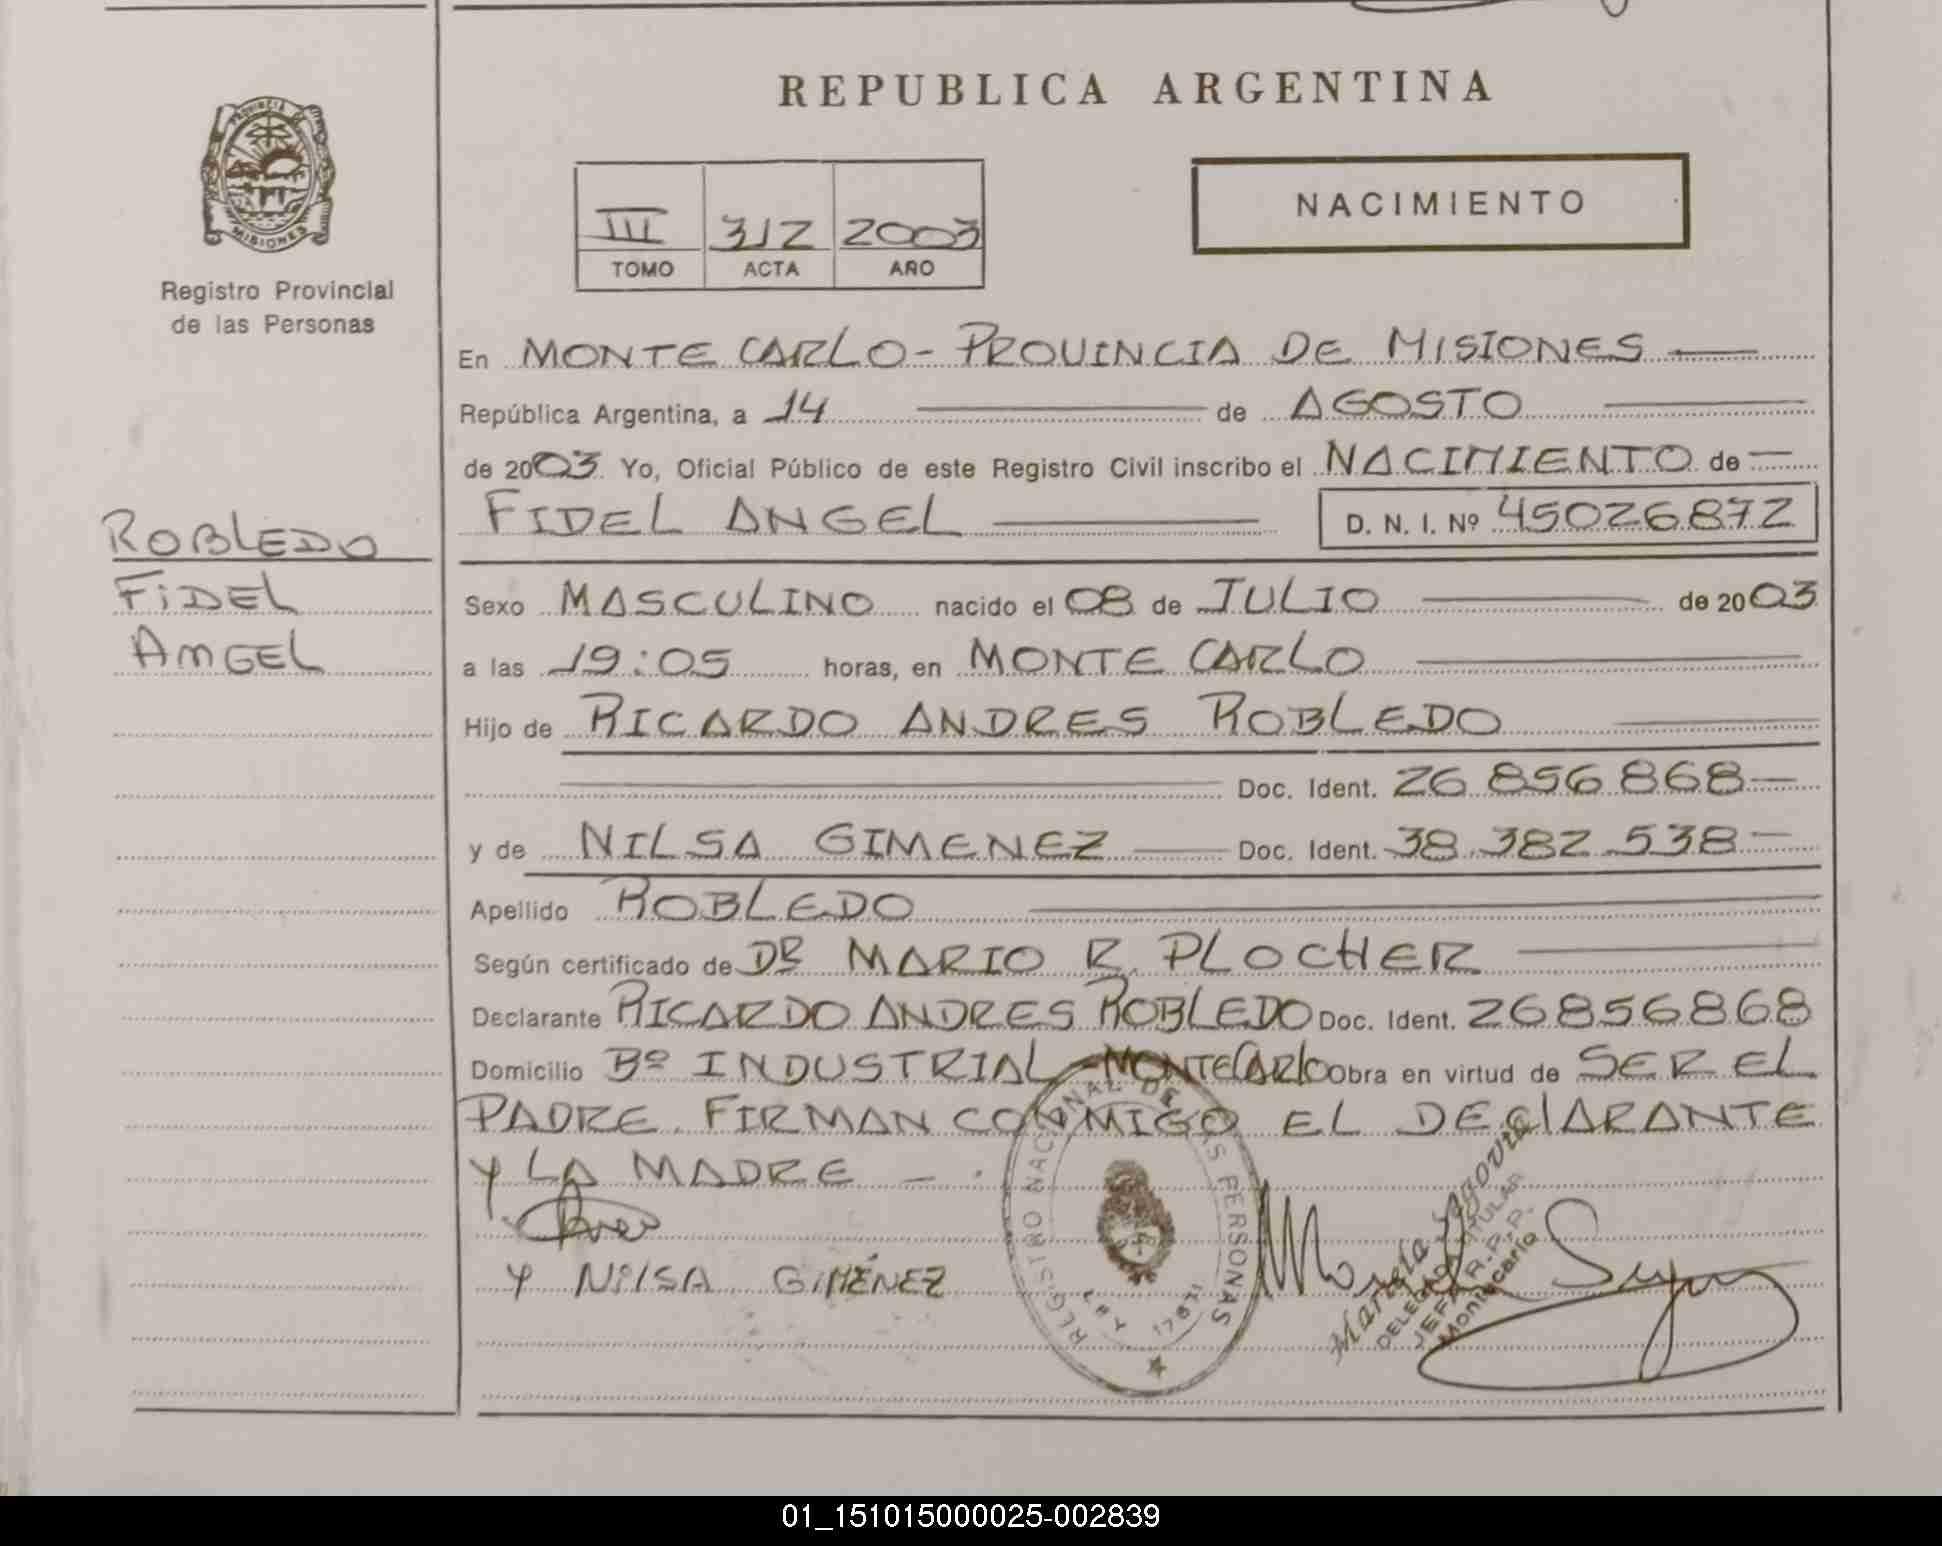 REPUBLICA ARGENTINA
PROVINCIA DE
MISIONES
Registro Provincial
de las Personas
NACIMIENTO
III 312 2003
TOMO ACTA AÑO
En MONTE CARLO - PROVINCIA DE MISIONES
República Argentina, a 14 de AGOSTO
de 2003 Yo, Oficial Público de este Registro Civil inscribo el NACIMIENTO de
FIDEL ANGEL D. N. I. Nº 45026872
ROBLEDO
FIDEL
ANGEL
Sexo MASCULINO nacido el 08 de JULIO de 2003
a las 19:05 horas, en MONTE CARLO
Hijo de RICARDO ANDRES ROBLEDO
Doc. Ident. 26 856 868
y de NILSA GIMENEZ Doc. Ident. 38 382 538
Apellido ROBLEDO
Según certificado de DR MARIO R. PLOCHER
Declarante RICARDO ANDRES ROBLEDO Doc. Ident. 26856868
Domicilio Bº INDUSTRIAL - MONTECARLO Obra en virtud de SER EL
PADRE. FIRMAN CONMIGO EL DEClARANTE
Y LA MADRE - .
Y NilSA GiMÉNEZ
REGISTRO NACIONAL DE LAS PERSONAS
LEY 17671
DELEGADA TITULAR
JEFA R.P.P.
Montecarlo
01_151015000025-002839